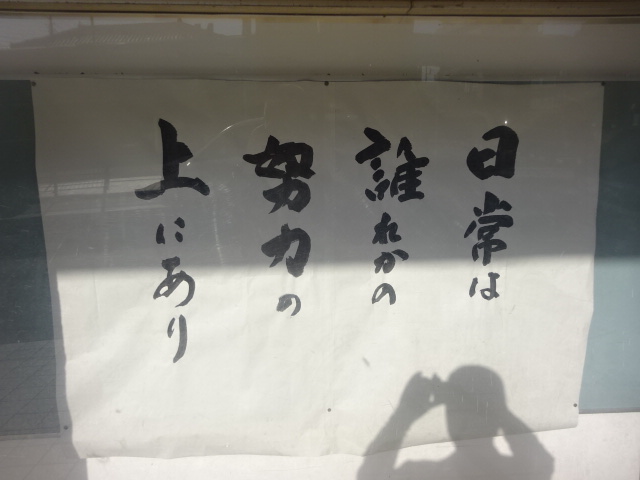 日常は
誰れかの
努力の
上にあり